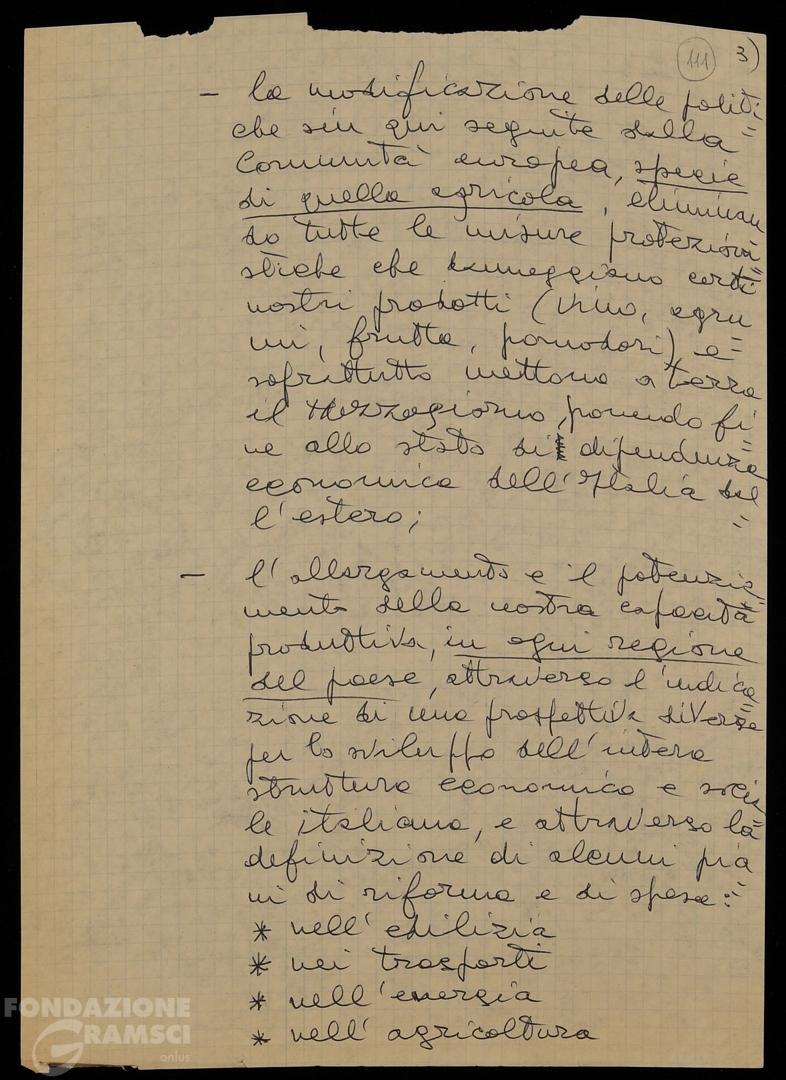 111 3)
– la modificazione delle politi=
che sin qui seguite dalla
Comunità europea, specie
di quella agricola, eliminan
do tutte le misure protezioni=
stiche che danneggiano certi
nostri prodotti (vino, agru=
mi, frutta, pomodori) e
soprattutto mettono a terra
il Mezzogiorno, ponendo fi=
ne allo stato di dipendenza
economica dell'Italia dal=
l'estero;
– l'allargamento e il potenzia=
mento della nostra capacità
produttiva, in ogni regione
del paese, attraverso l'indica=
zione di una prospettiva diversa
per lo sviluppo dell'intera
struttura economica e socia=
le italiana, e attraverso la
definizione di alcuni pia=
ni di riforma e di spesa:
* nell'edilizia
* nei trasporti
* nell'energia
* nell'agricoltura
FONDAZIONE
GRAMSCI
onlus